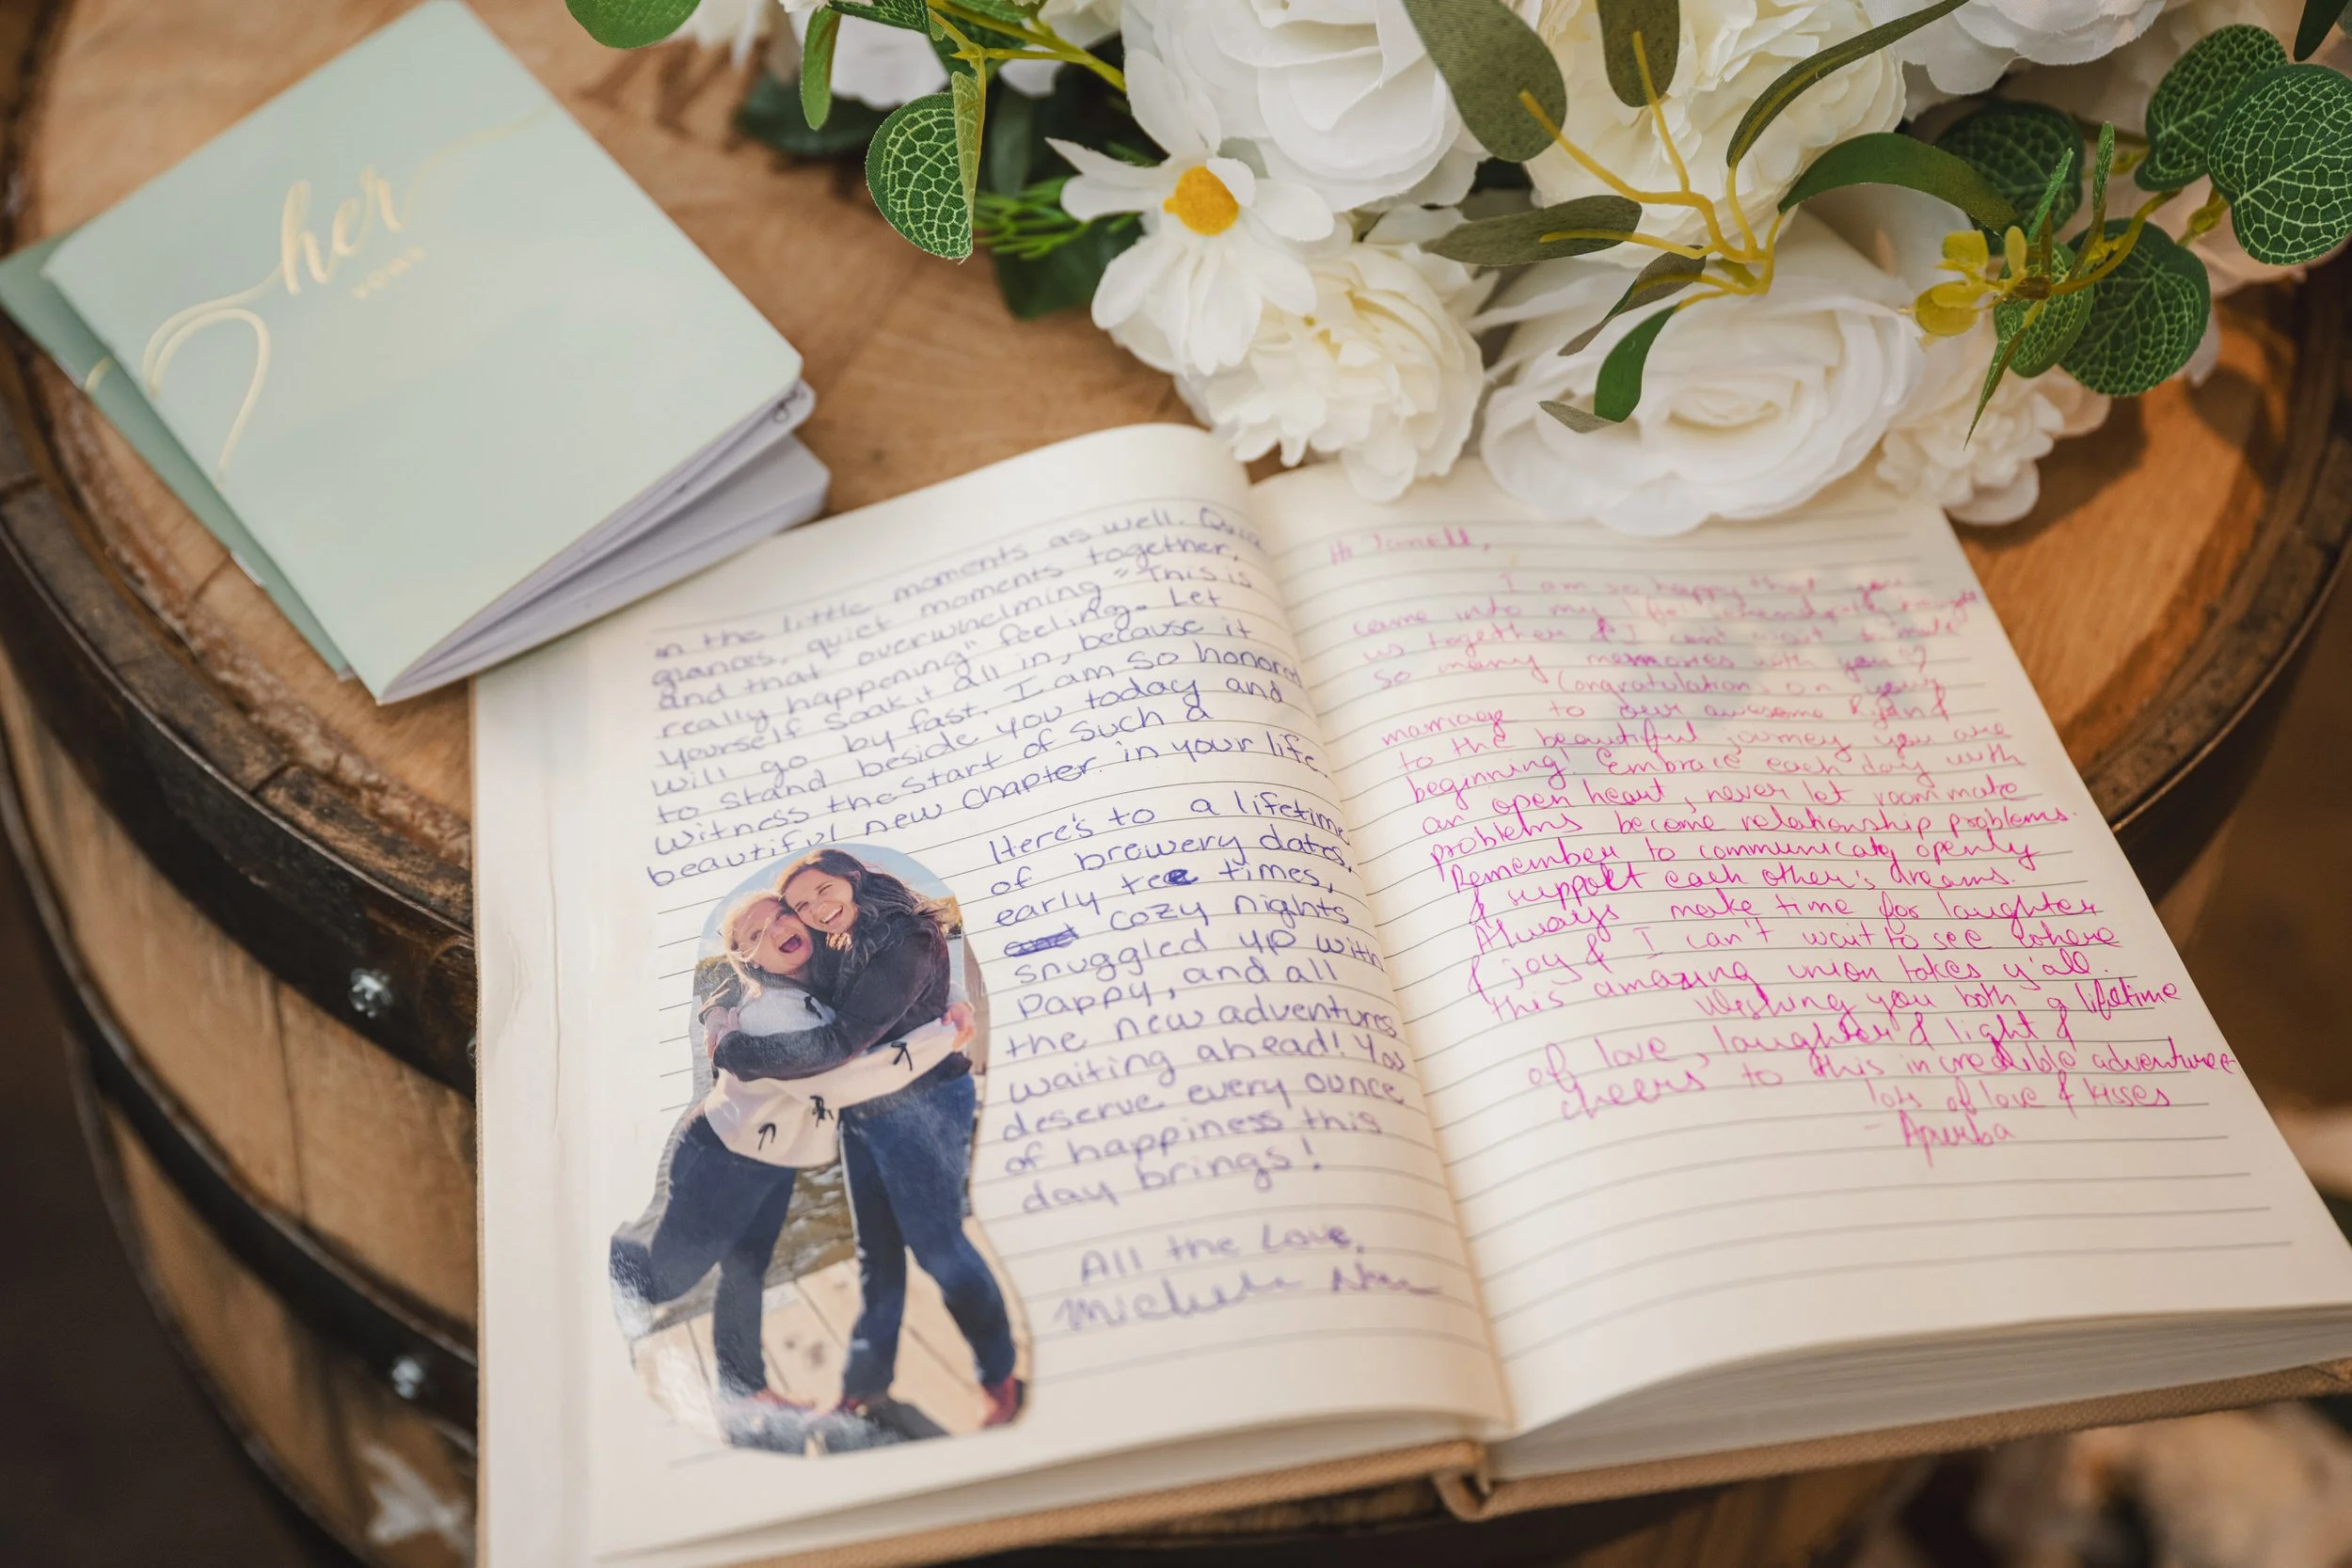 her
vows
in the little moments as well. Quick
glances, quiet moments together,
and that overwhelming "This is
really happening" feeling. Let
yourself soak it all in, because it
will go by fast. I am so honored
to stand beside you today and
witness the start of such a
beautiful new chapter in your life.
Here's to a lifetime
of brewery dates,
early tee times,
cozy nights
snuggled up with
Pappy, and all
the new adventures
waiting ahead! You
deserve every ounce
of happiness this
day brings!
All the Love,
Michele
Hi
I am so happy that you
came into my
us together & I can't wait to make
so many memories with you ♡
Congratulations on your
marriage to our awesome and
to the beautiful journey you are
beginning! Embrace each day with
an open heart, never let roommate
problems become relationship problems.
Remember to communicate openly
& support each other's dreams.
Always make time for laughter
& joy & I can't wait to see where
this amazing union takes y'all.
Wishing you both a lifetime
of love, laughter & light &
cheers to this incredible adventure
lots of love & kisses
- Apurba